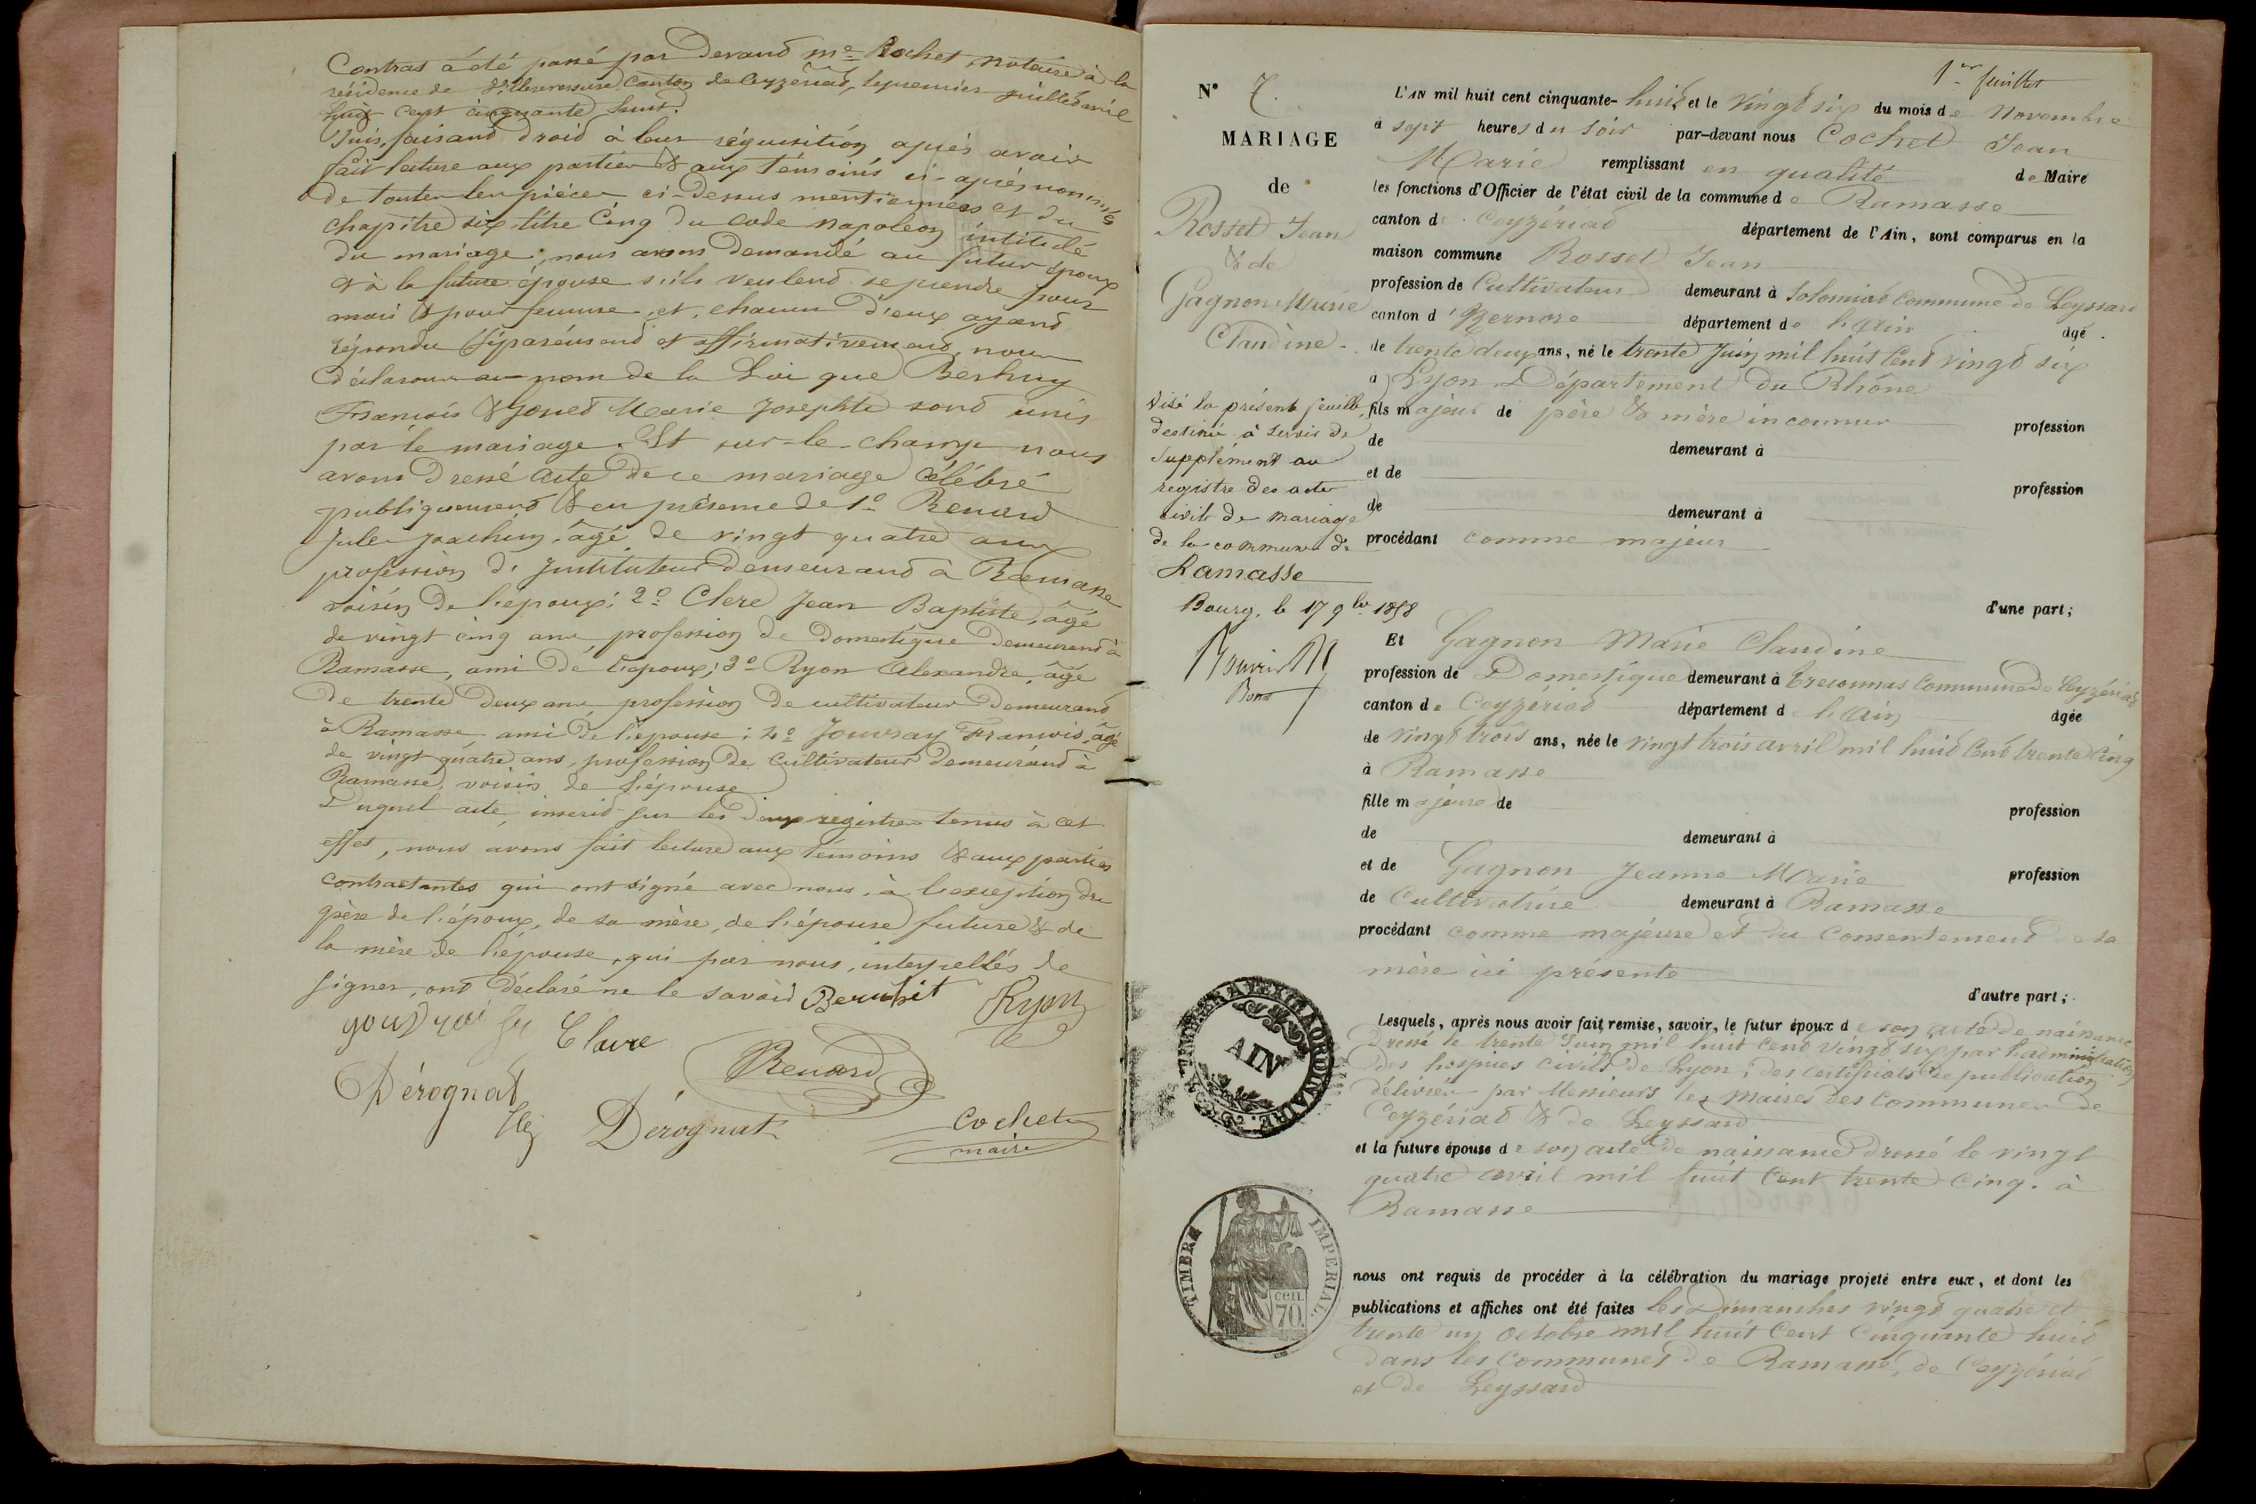 Contrat a été passé par Devant Me Rochet, notaire à la
résidence de Villereversure Canton de Ceyzériat, le premier juillet mil
huit cent cinquante huit.
Puis, faisant droit à leur réquisition après avoir
fait lecture aux parties & aux témoins ci-après nommés
de toutes les pièces ci-Dessus mentionnées et du
chapitre six titre Cinq du Code Napoléon intitulé
du mariage, nous avons Demandé au futur époux
& à la future épouse s'ils veulent se prendre pour
mari & pour femme, et, chacun D'eux ayant
répondu séparément et affirmativement, nous
déclarons au nom de la Loi que Berhuy
François & Goued Marie Josephte sont unis
par le mariage. Et sur-le-champ nous
avons Dressé acte De ce mariage célébré
publiquement & en présence de 1º Renard
Jules Joachim, âgé de vingt quatre ans
profession d'Instituteur Demeurant à Ramasse
voisin De l'époux; 2º Clerc Jean Baptiste, âgé
de vingt cinq ans profession De Domestique Demeurant à
Ramasse, ami De l'époux; 3º Ryon Alexandre, âgé
De trente Deux ans profession De cultivateur Demeurant
à Ramasse ami De l'épouse; 4º Jouvray François, âgé
de vingt quatre ans, profession De Cultivateur Demeurant à
Ramasse, voisin de l'épouse
Duquel acte, inscrit sur les Deux registres tenus à cet
effet, nous avons fait lecture aux témoins & aux parties
contractantes qui ont signé avec nous, à l'exception du
père de l'époux, de sa mère, de l'épouse future & de
la mère de l'épouse, qui par nous, interpellés de
signer, ont Déclaré ne le savoir
Ryon
Renard
Dérognat
Dérognat
Cochet
maire
1er feuillet
Nº 7.
MARIAGE
de
Rosset Jean
& de
Gagnon Marie
Claudine
Visé la présente feuille,
destinée à servir de
Supplément au
registre des actes
civils de Mariage
de la commune de
Ramasse
Bourg, le 17 9bre 1858
L'AN mil huit cent cinquante-huit et le vingt six du mois de Novembre
à sept heures du soir par-devant nous Cochet Jean
Marie remplissant en qualité de Maire
les fonctions d'Officier de l'état civil de la commune de Ramasse
canton de Ceyzériat département de l'Ain, sont comparus en la
maison commune Rosset Jean
profession de Cultivateur demeurant à Solomiat commune de Leyssard
canton d'Izernore département de l'Ain âgé
de trente deux ans, né le trente Juin mil huit Cent vingt six
à Lyon Département Du Rhône
fils majeur de père & mère inconnus profession
de demeurant à
et de profession
de demeurant à
procédant comme majeur
d'une part;
Et Gagnon Marie Claudine
profession de Domestique demeurant à Treconnas Commune de Ceyzériat
canton de Ceyzériat département de l'Ain âgée
de vingt trois ans, née le vingt trois avril mil huit Cent trente Cinq
à Ramasse
fille majeure de profession
de demeurant à
et de Gagnon Jeanne Marie profession
de Cultivatrice demeurant à Ramasse
procédant comme majeure et Du Consentement de sa
mère ici présente
d'autre part;
Lesquels, après nous avoir fait remise, savoir, le futur époux de son acte de naissance
Dressé le trente Juin mil huit cent vingt six par l'administration
Des hospices civils de Lyon; Des certificats De publication
délivrés par Messieurs les Maires Des Communes de
Ceyzériat & de Leyssard
et la future épouse de son acte De naissance Dressé le vingt
quatre avril mil huit Cent trente Cinq. à
Ramasse
nous ont requis de procéder à la célébration du mariage projeté entre eux, et dont les
publications et affiches ont été faites les Dimanches vingt quatre et
trente un Octobre mil huit Cent Cinquante huit
dans les communes De Ramasse, de Ceyzériat
et De Leyssard
AIN
TIMBRE IMPERIAL
CEN.
70.